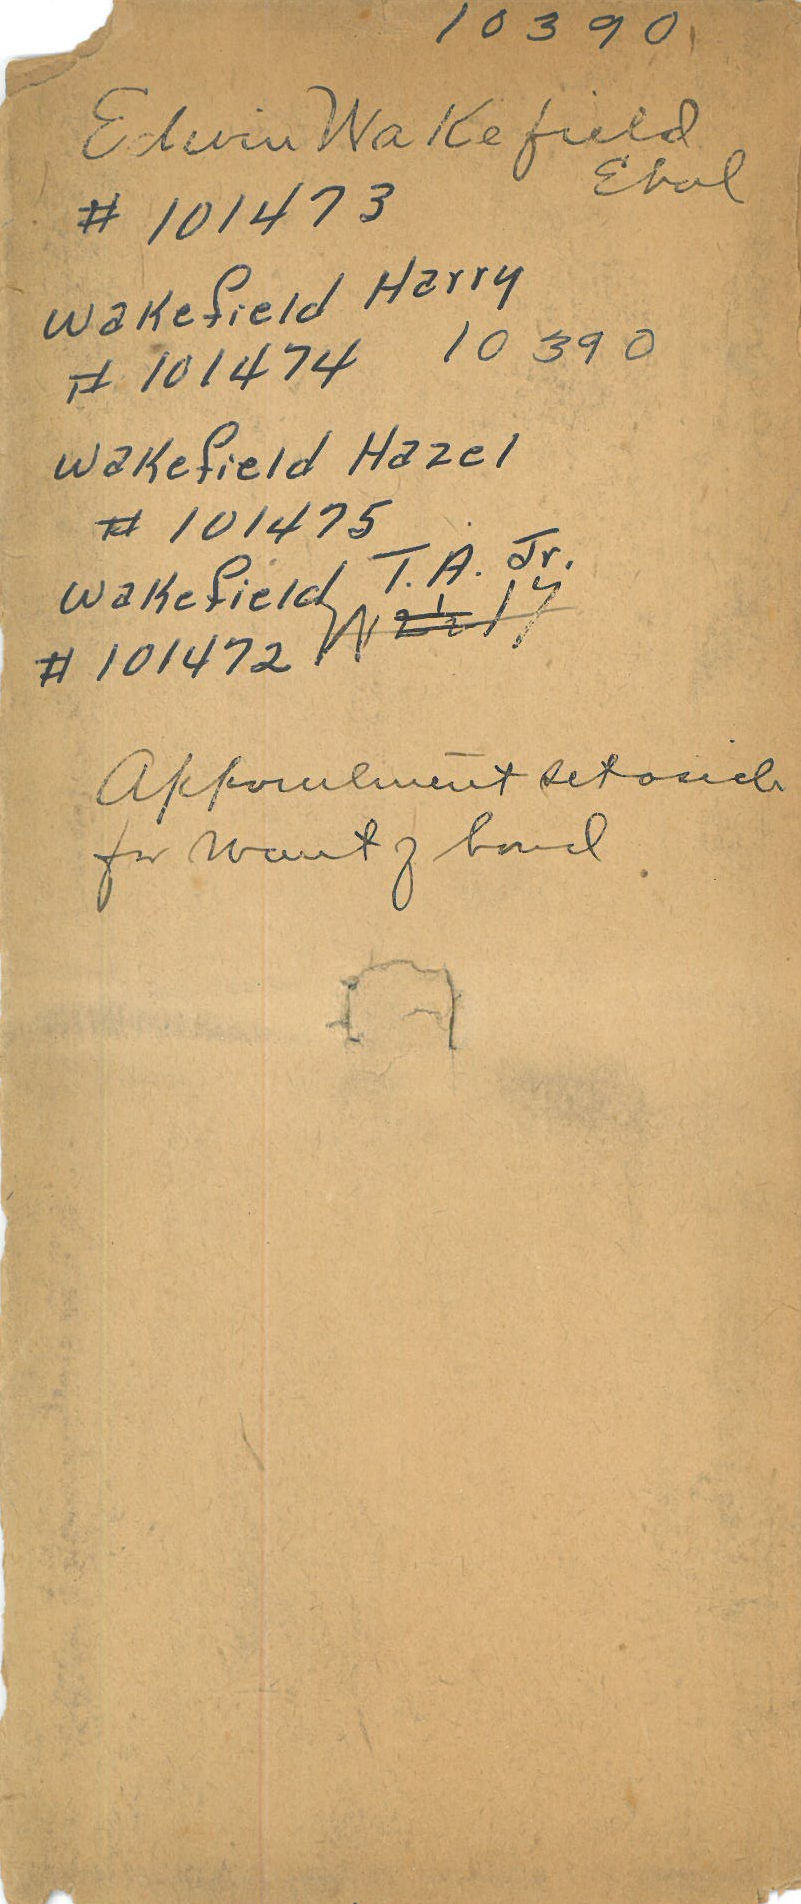 10390
Edwin Wakefield
Et al
# 101473
Wakefield Harry
# 101474 10390
Wakefield Hazel
# 101475
Wakefield T.A. Jr.
# 101472 17
Appointment set aside
for want of bond